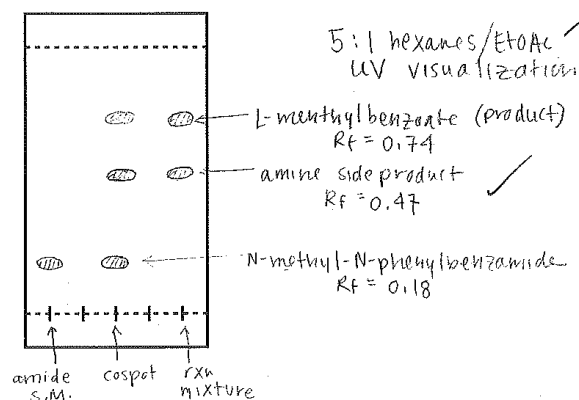 5:1 hexanes/EtOAc ✓
UV visualization
L-menthylbenzoate (product)
Rf = 0.74
amine side product
Rf = 0.47 ✓
N-methyl-N-phenylbenzamide
Rf = 0.18
amide
S.M.
cospot
rxn
mixture